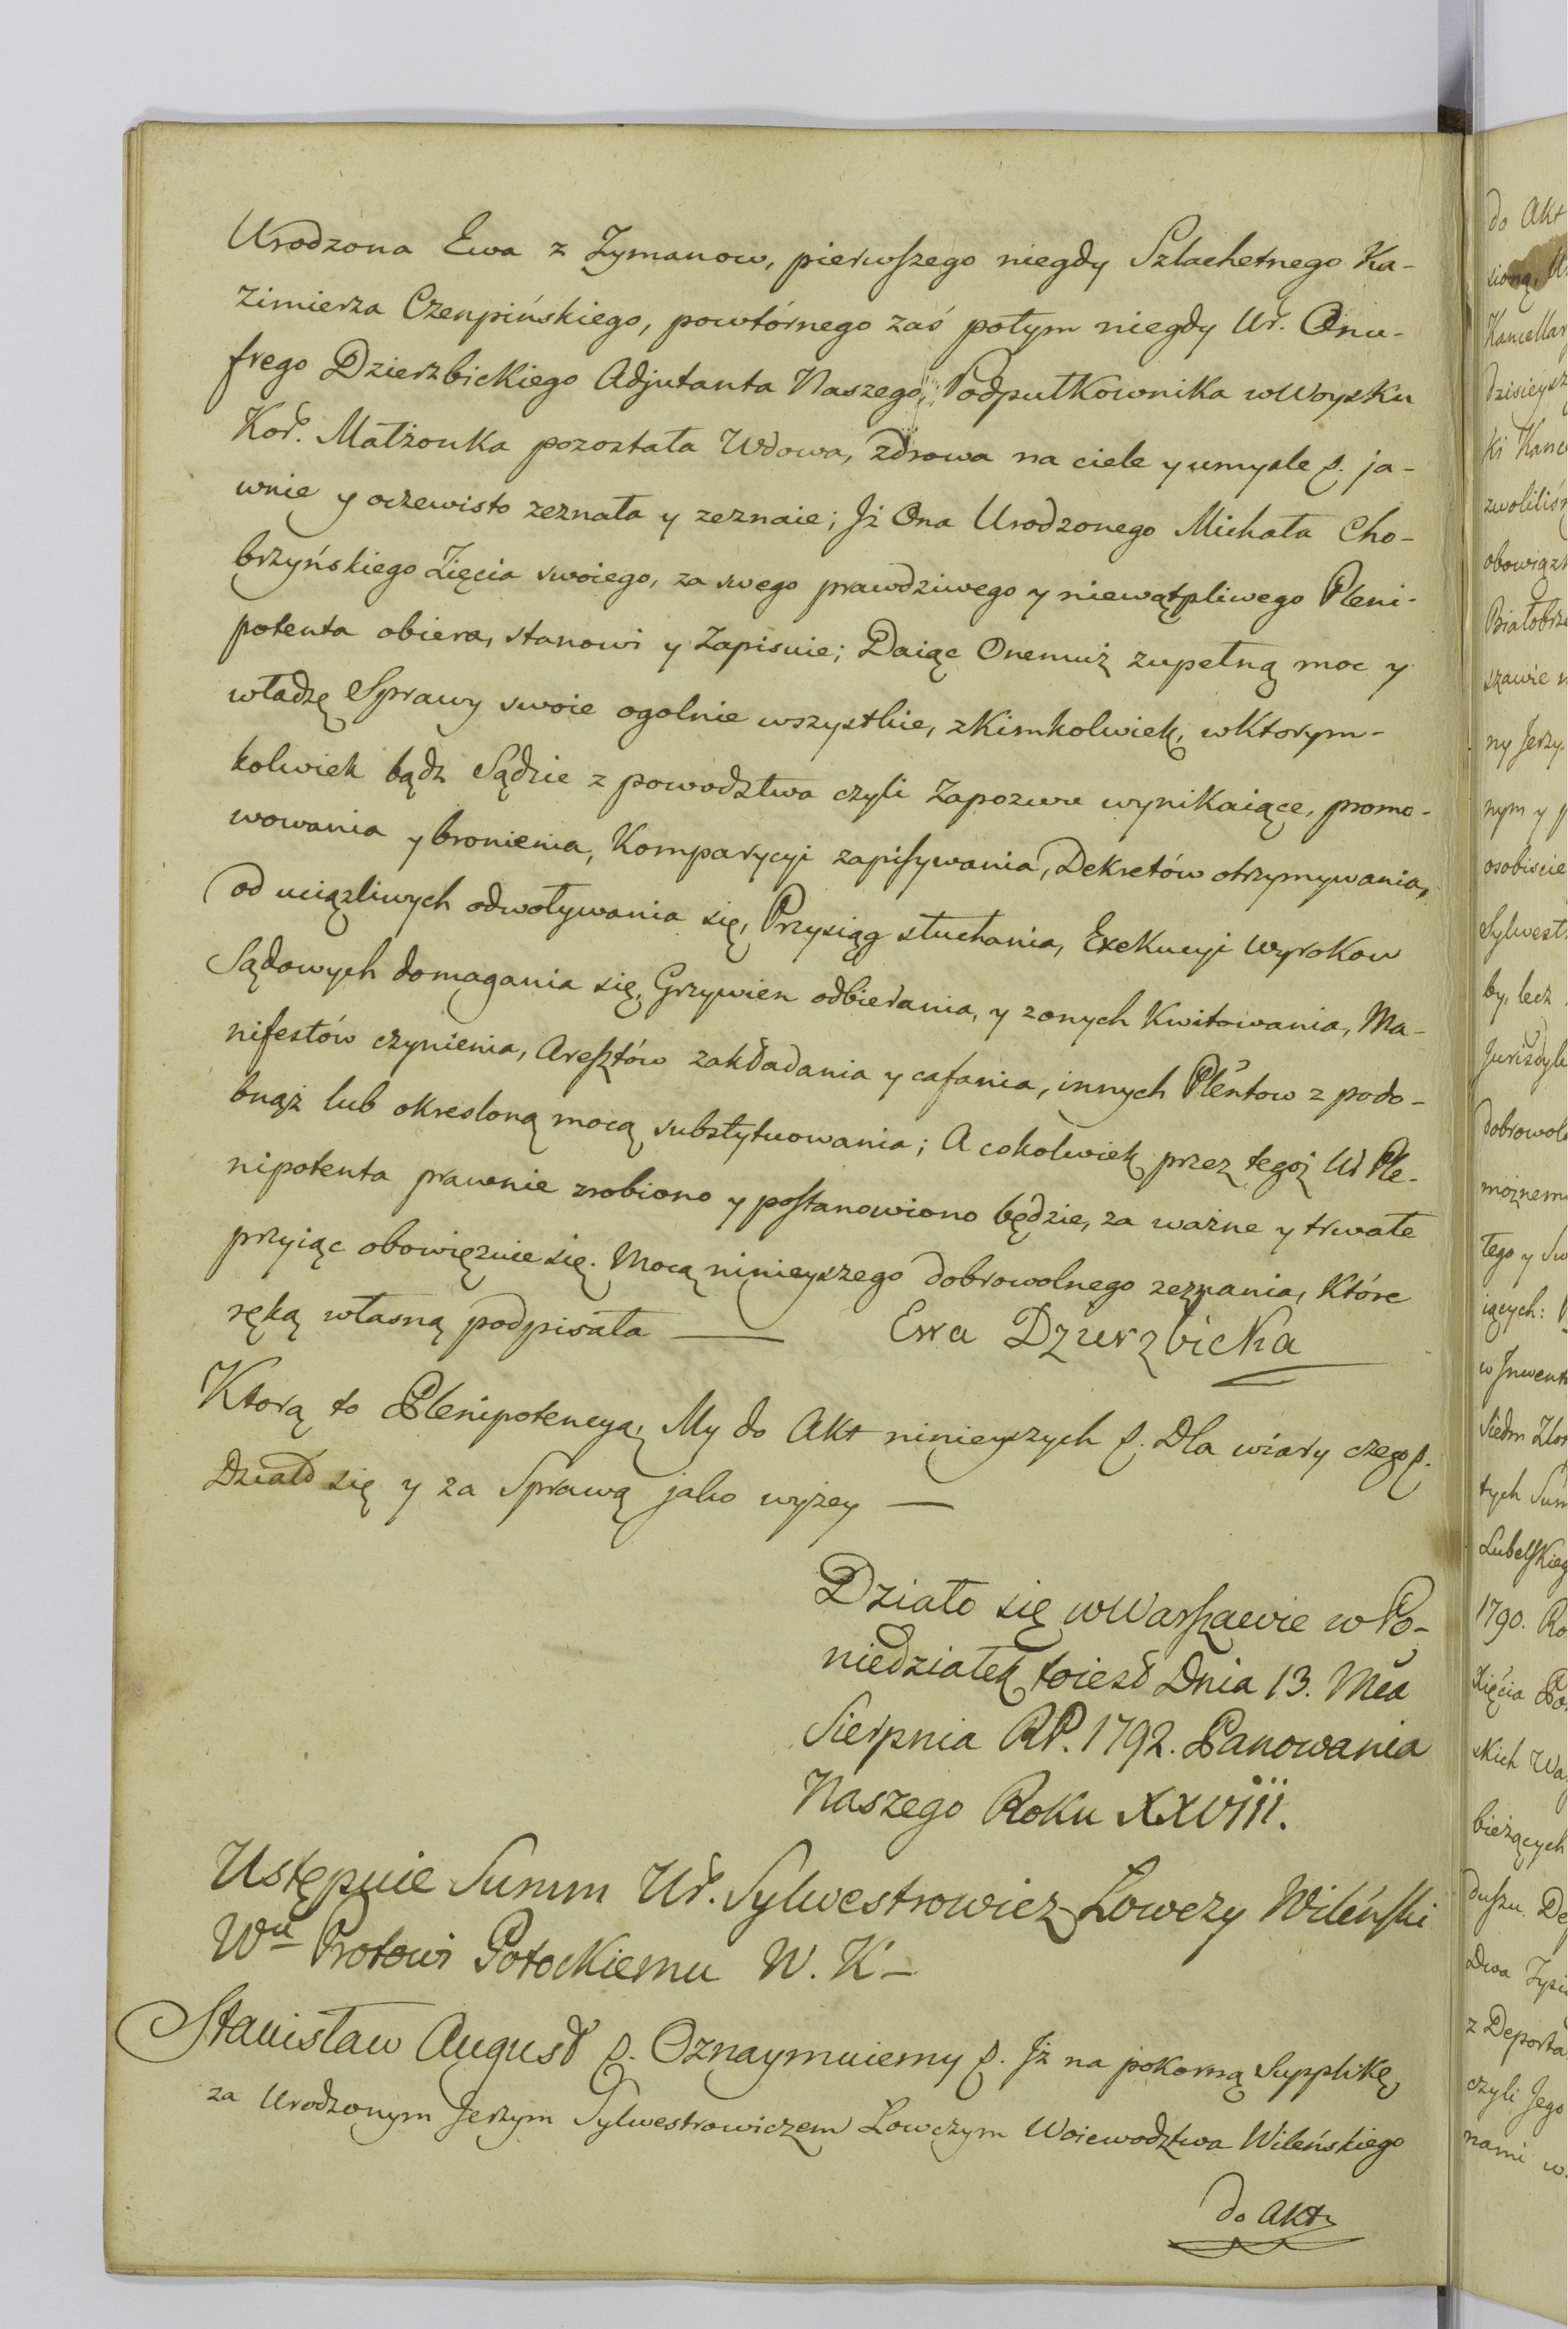 Urodzona Ewa z Zymanow, pierwszego niegdy Szlachetnego Ka-
zimierza Czenpińskiego, powtórnego zaś potym niegdy Ur. Onu-
frego Dzierzbickiego Adjutanta Naszego, Podpułkownika w Woysku
Kor. Małżonka pozostała Wdowa, zdrowa na ciele y umysle p. ja-
wnie y oczewisto zeznała y zeznaie; Jż Ona Urodzonego Michała Cho-
brzyńskiego Zięcia swoiego, za swego prawdziwego y niewątpliwego Pleni-
potenta obiera, stanowi y Zapisuie; Daiąc Onemuż zupełną moc y
władzę Sprawy swoie ogolnie wszystkie, z Kimkolwiek, w Ktorym-
kolwiek bądz Sądzie z powodztwa czyli Zapozwu wynikaiące, promo-
wowania y bronienia, Komparycyi zapisywania, Dekretów otrzymywania,
od uciązliwych odwoływania się, Przysiąg słuchania, Exekucyi Wyrokow
Sądowych domagania się, Grzywien odbierania, y z onych Kwitowania, Ma-
nifestów czynienia, Aresztów zakładania y cafania, innych Plentow z podo-
bnąż lub okresloną mocą substytuowania; A cokolwiek przez tegoż Ur Ple-
nipotenta prawnie zrobiono y postanowiono będzie, za ważne y trwałe
przyiąc obowięzuie się. Mocą ninieyszego dobrowolnego zeznania, Które
ręką własną podpisała — Ewa Dzierzbicka
Ktorą to Plenipotencyą, My do Akt ninieyszych p. Dla wiary czego p.
Działo się y za Sprawą jako wyzey —
Działo się w Warszawie w Po-
niedziałek toiest Dnia 13. Mca
Sierpnia RP. 1792. Panowania
Naszego Roku XXVIII.
Ustępuie Summ Ur. Sylwestrowicz Łowczy Wileński
Wu Protowi Potockiemu W. K-
Stanisław August p. Oznaymuiemy p. Jż na pokorną Supplikę,
za Urodzonym Jerzym Sylwestrowiczem Łowczym Woiewodztwa Wileńskiego
do Akt
do Akt
Kancellar
dzisieysz
ki Kance
obowiązk
Białobrze
szawie
ny Jerzy
nym y p
osobiscie
Sylwest
by, lecz
dobrowol
moznem
tego y
iących:
w Jnwent
siedm Zło
tych Sum
Lubelskieg
1790. Ro
xięcia Po
skich Wa
bieżących
duszu De
Dwa Tysi
z Deporta
czyli Jego
nami w